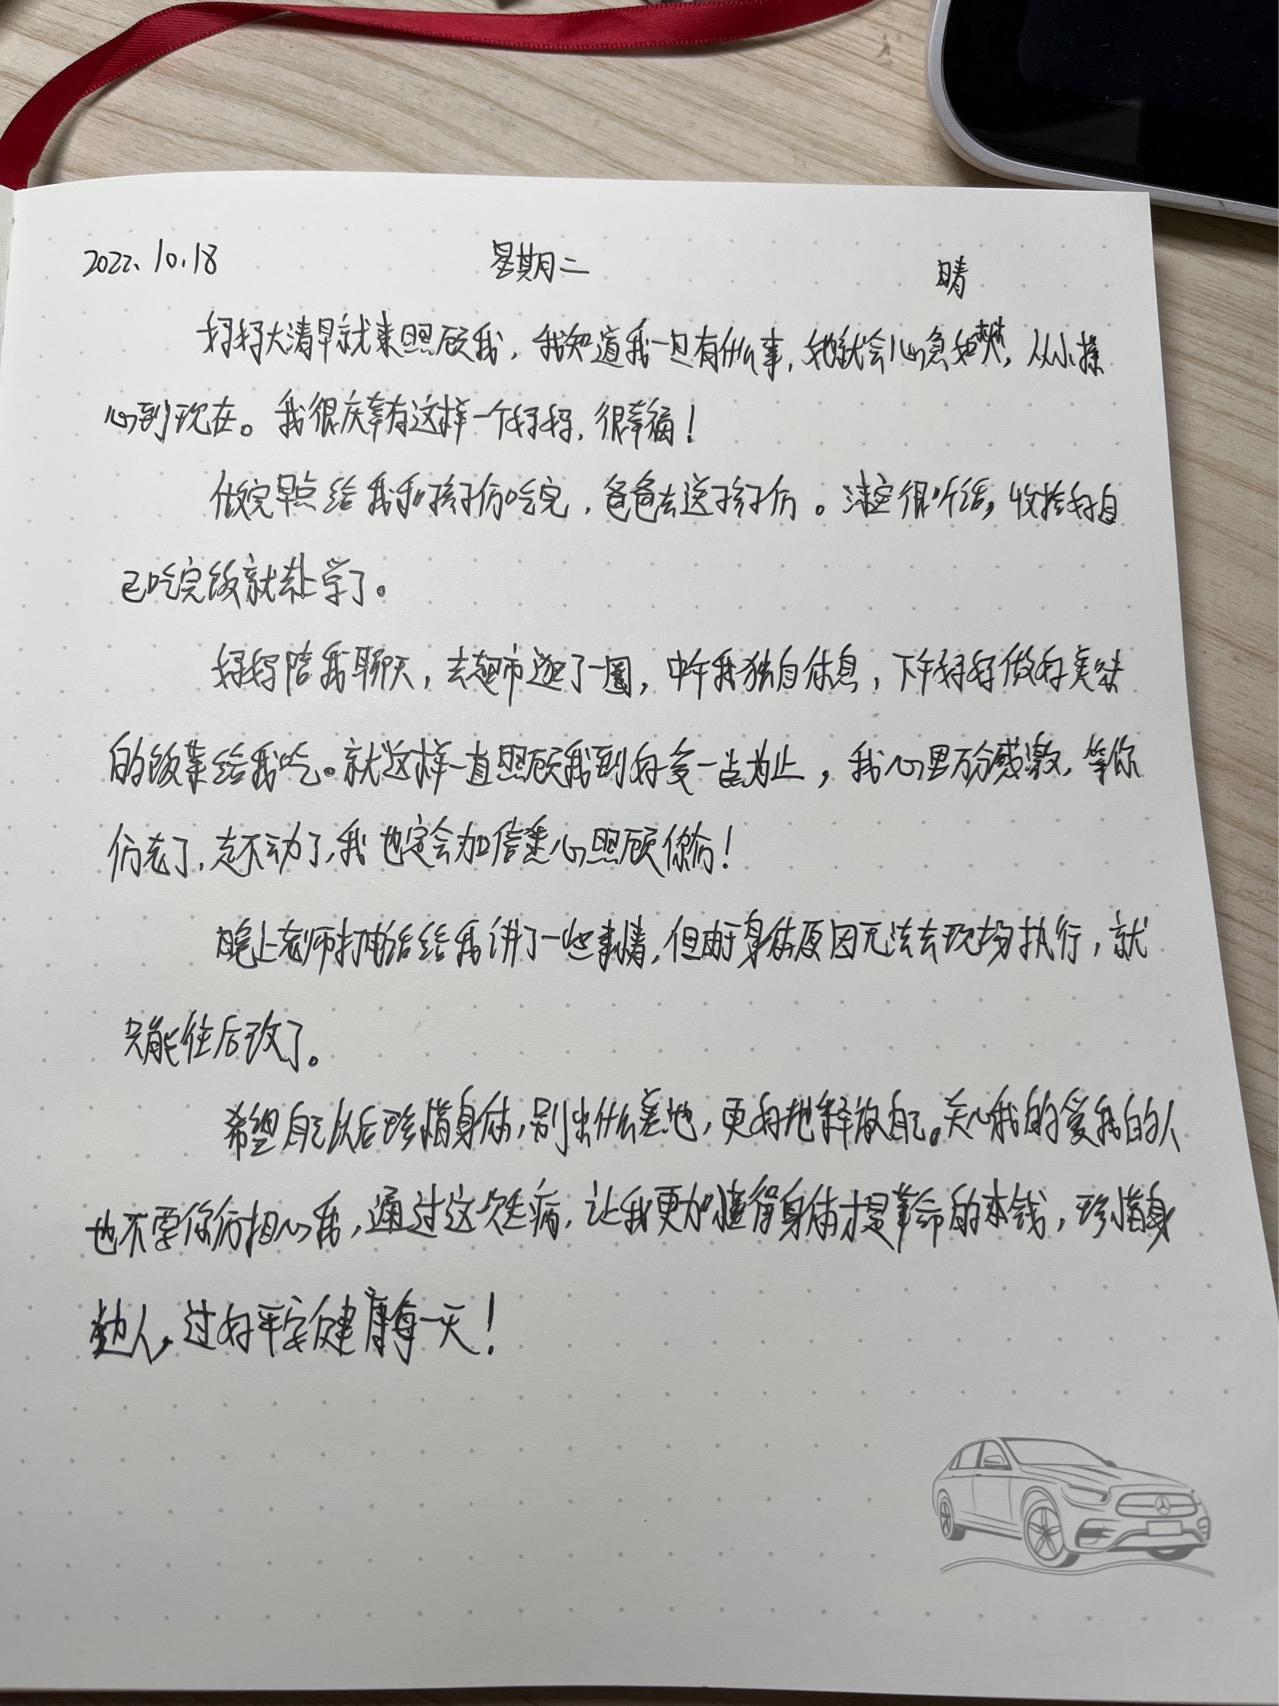 2022.10.18 星期二 晴
妈妈大清早就来照顾我，我知道我一旦有什么事，她就会心急如焚，从小操
心到现在。我很庆幸有这样一个妈妈，很幸福！
做完早点给我和孩子们吃完，爸爸去送孩子们。很听话，收拾好自
己吃完饭就去上学了。
妈妈陪我聊天，去超市逛了一圈，中午我独自休息，下午妈妈做好美味
的饭菜给我吃。就这样一直照顾我到好受一点为止，我心里万分感激，等你
们老了，走不动了，我也定会加倍悉心照顾你们！
晚上老师打电话给我讲了一些事情，但由于身体原因无法去现场执行，就
只能往后改了。
希望自己以后珍惜身体，别出什么差池，更好地释放自己。关心我的爱我的人
也不要你们担心我，通过这次生病，让我更加懂得身体才是革命的本钱，珍惜身
边人，过好平安健康每一天！